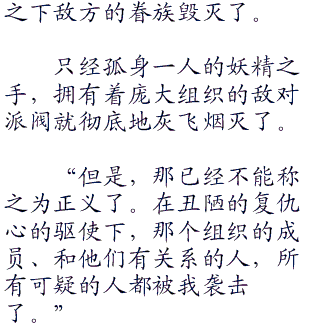 之下敌方的眷族毁灭了。
只经孤身一人的妖精之
手，拥有着庞大组织的敌对
派阀就彻底地灰飞烟灭了。
“但是，那已经不能称
之为正义了。在丑陋的复仇
心的驱使下，那个组织的成
员、和他们有关系的人，所
有可疑的人都被我袭击
了。”